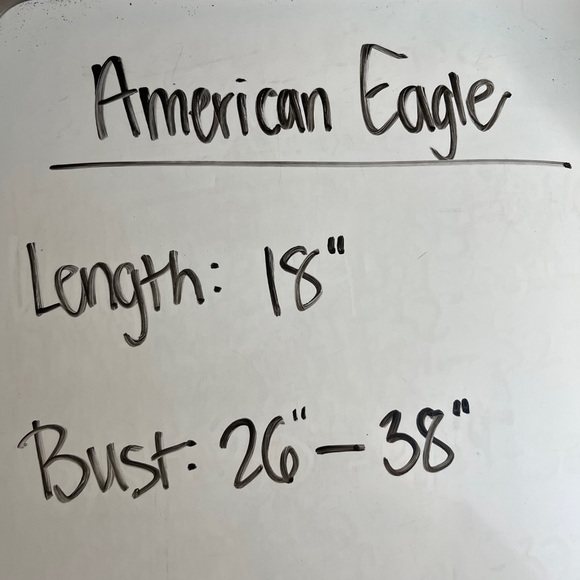 American Eagle
Length: 18"
Bust: 26" - 38"